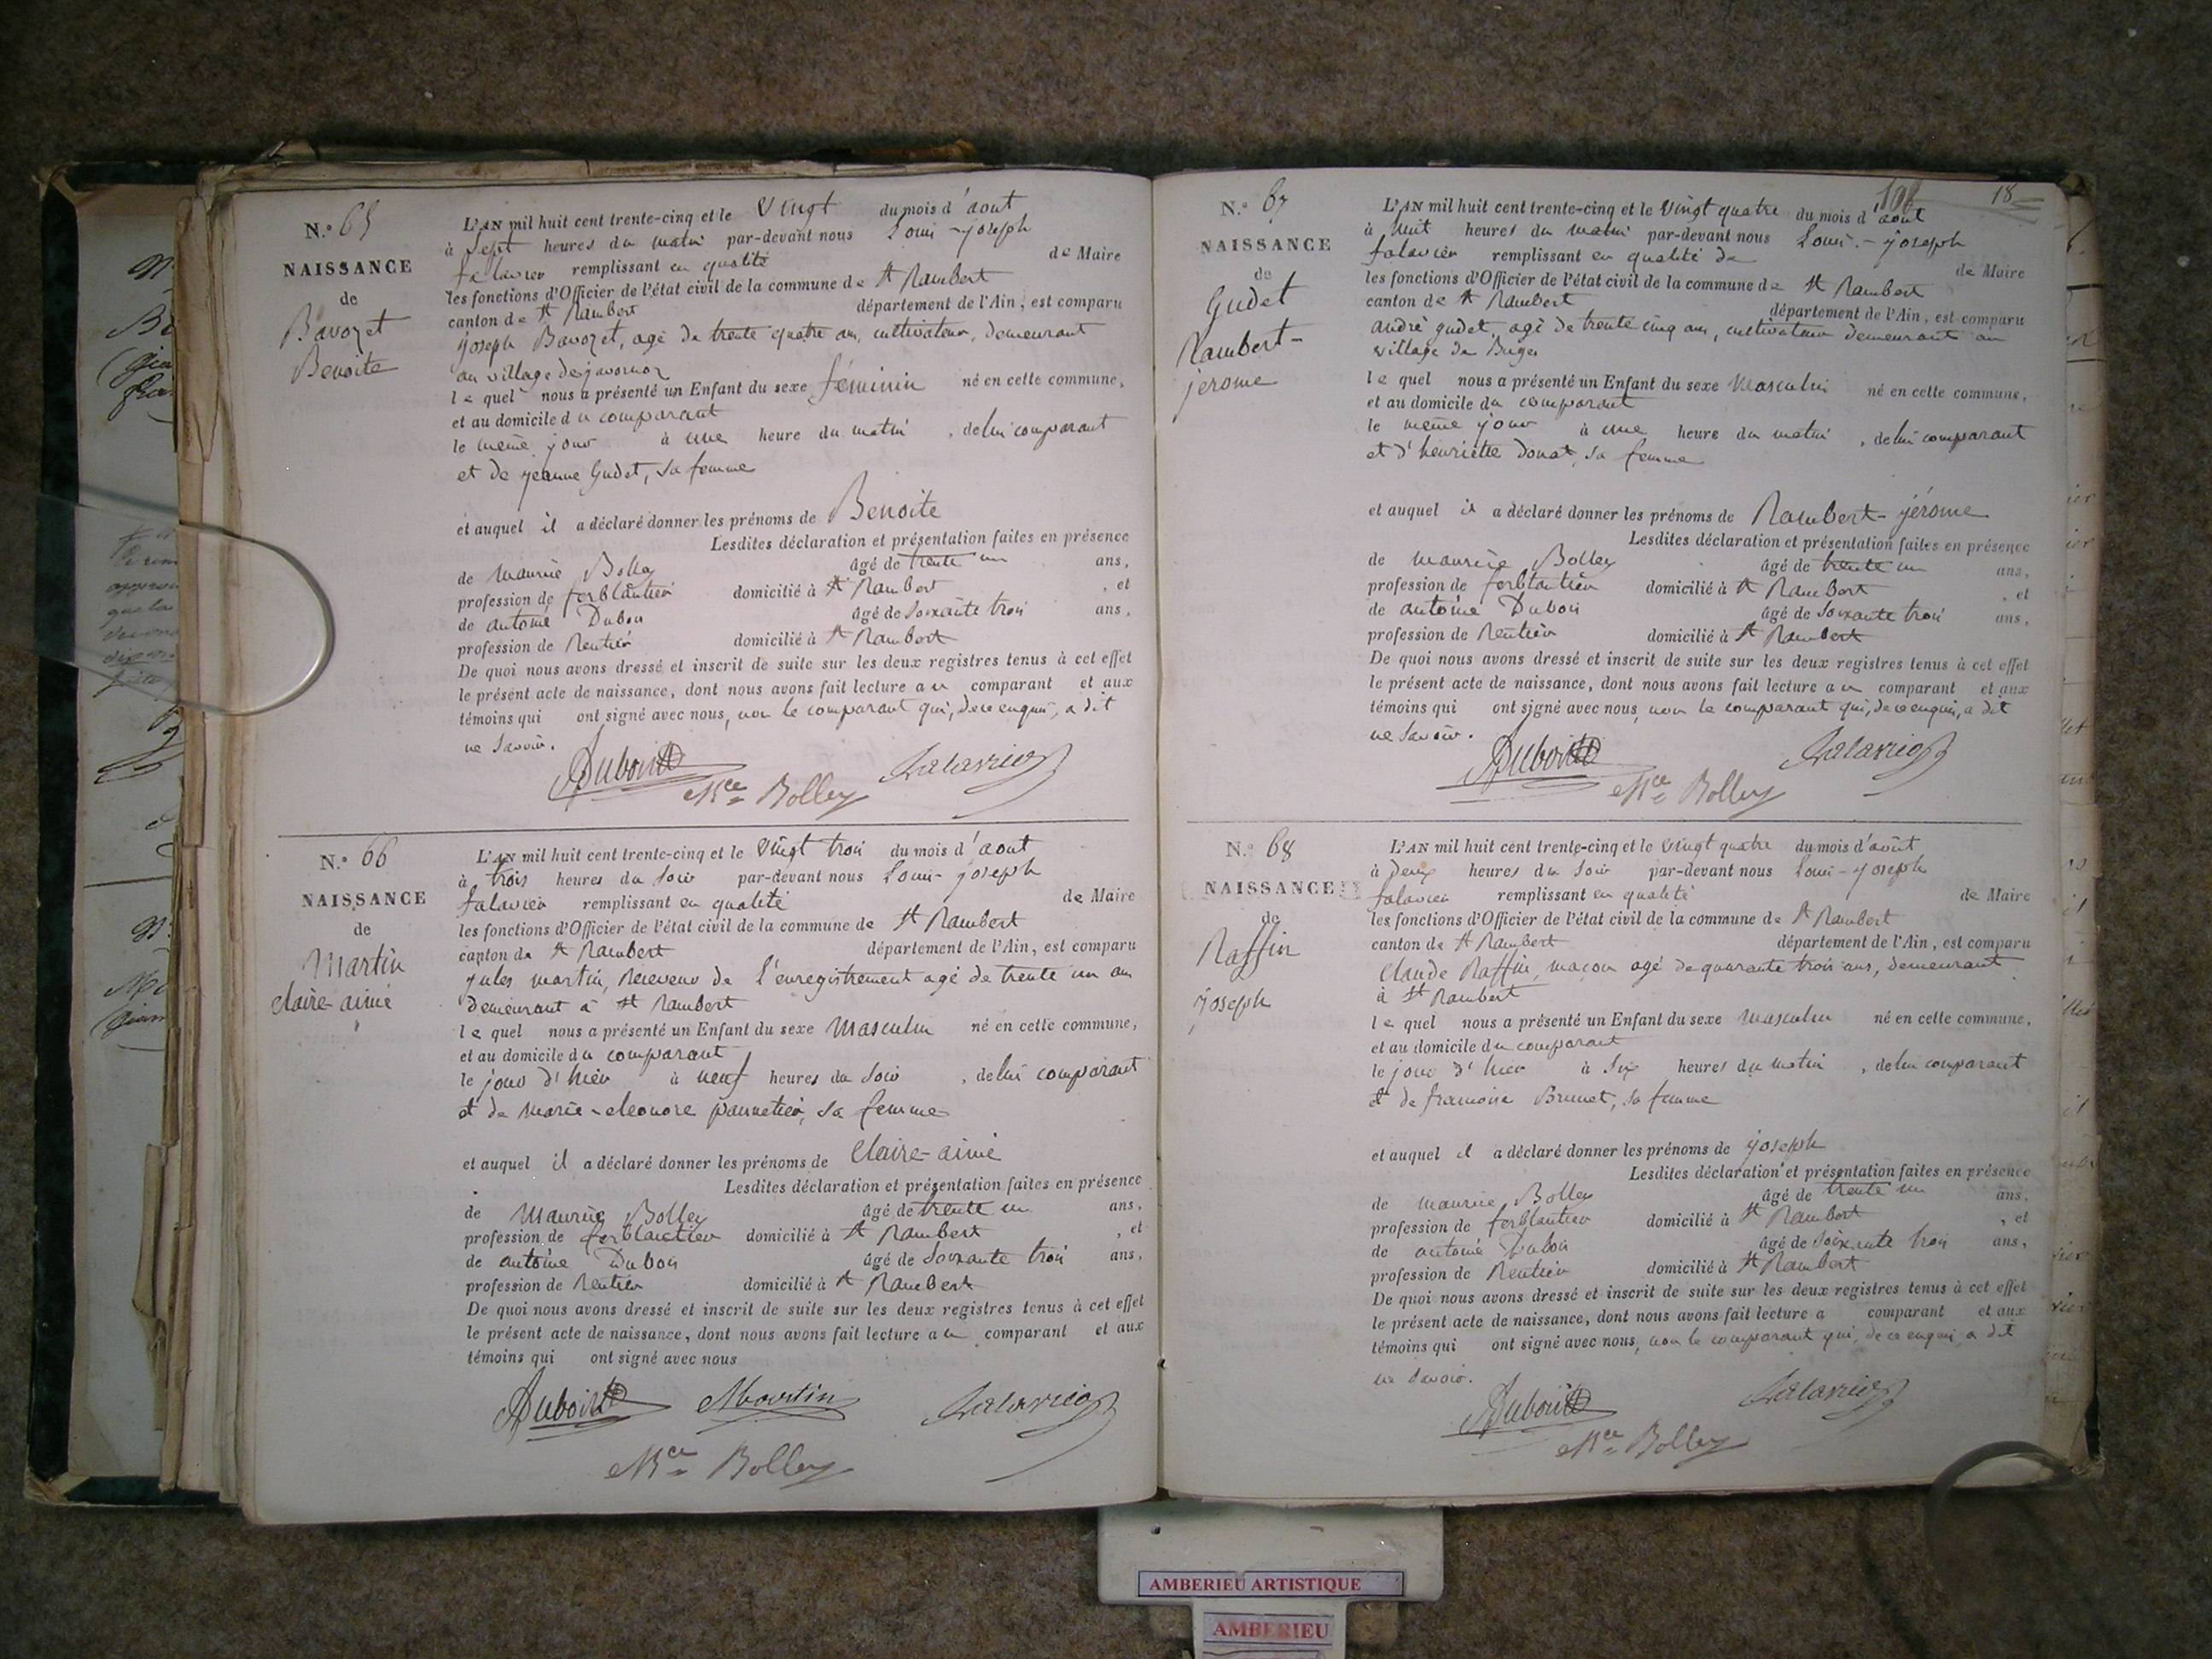 N.º 65
NAISSANCE
de
Bavozet
Benoite
L'AN mil huit cent trente-cinq et le Vingt du mois d'aout
à Sept heures du matin par-devant nous Louis-joseph
falavier remplissant en qualité de Maire
les fonctions d'Officier de l'état civil de la commune de St Rambert
canton de St Rambert département de l'Ain, est comparu
joseph Bavozet, agé de trente quatre ans, cultivateur, demeurant
au village de javornoz
le quel nous a présenté un Enfant du sexe féminin né en cette commune,
et au domicile du comparant
le même jour à une heure du matin, de lui comparant
et de jeanne Gudet, sa femme
et auquel il a déclaré donner les prénoms de Benoite
Lesdites déclaration et présentation faites en présence
de Maurice Bolley âgé de trente un ans,
profession de ferblantier domicilié à St Rambert, et
de antoine Dubois âgé de Soixante trois ans,
profession de Rentier domicilié à St Rambert
De quoi nous avons dressé et inscrit de suite sur les deux registres tenus à cet effet
le présent acte de naissance, dont nous avons fait lecture au comparant et aux
témoins qui ont signé avec nous, non le comparant qui, de ce enquis, a dit
ne Savoir.
Dubois
Mce Bolley
falavier
N.º 66
NAISSANCE
de
Martin
Claire-aimé
L'AN mil huit cent trente-cinq et le Vingt trois du mois d'aout
à trois heures du Soir par-devant nous Louis-joseph
falavier remplissant en qualité de Maire
les fonctions d'Officier de l'état civil de la commune de St Rambert
canton de St Rambert département de l'Ain, est comparu
jules Martin, Receveur de L'enregistrement agé de trente un ans
Demeurant à St Rambert
le quel nous a présenté un Enfant du sexe Masculin né en cette commune,
et au domicile du comparant
le jour d'hier à neuf heures du Soir, de lui comparant
et de Marie-eleonore pannetier, sa femme
et auquel il a déclaré donner les prénoms de Claire-aimé
Lesdites déclaration et présentation faites en présence
de Maurice Bolley âgé de trente un ans,
profession de ferblantier domicilié à St Rambert, et
de antoine Dubois âgé de Soixante trois ans,
profession de Rentier domicilié à St Rambert
De quoi nous avons dressé et inscrit de suite sur les deux registres tenus à cet effet
le présent acte de naissance, dont nous avons fait lecture au comparant et aux
témoins qui ont signé avec nous
Dubois Martin falavier
Mce Bolley
108 18
N.º 67
NAISSANCE
de
Gudet
Rambert-
jerome
L'AN mil huit cent trente-cinq et le Vingt quatre du mois d'aout
à huit heures du matin par-devant nous Louis-joseph
falavier remplissant en qualité de de Maire
les fonctions d'Officier de l'état civil de la commune de St Rambert
canton de St Rambert département de l'Ain, est comparu
andré gudet, agé de trente cinq ans, cultivateur demeurant au
village de
le quel nous a présenté un Enfant du sexe Masculin né en cette commune,
et au domicile du comparant
le même jour à une heure du matin, de lui comparant
et d'henriette Donat, sa femme
et auquel il a déclaré donner les prénoms de Rambert-jérome
Lesdites déclaration et présentation faites en présence
de maurice Bolley âgé de trente un ans,
profession de ferblantier domicilié à St Rambert, et
de antoine Dubois âgé de Soixante trois ans,
profession de Rentier domicilié à St Rambert
De quoi nous avons dressé et inscrit de suite sur les deux registres tenus à cet effet
le présent acte de naissance, dont nous avons fait lecture au comparant et aux
témoins qui ont signé avec nous, non le comparant qui, de ce enquis, a dit
ne Savoir.
Dubois
Mce Bolley
falavier
N.º 68
NAISSANCE
de
Raffin
joseph
L'AN mil huit cent trente-cinq et le Vingt quatre du mois d'août
à Deux heures du Soir par-devant nous Louis-joseph
falavier remplissant en qualité de Maire
les fonctions d'Officier de l'état civil de la commune de St Rambert
canton de St Rambert département de l'Ain, est comparu
Claude Raffin, maçon agé de quarante trois ans, demeurant
à St Rambert
le quel nous a présenté un Enfant du sexe masculin né en cette commune,
et au domicile du comparant
le jour d'hier à Six heures du matin, de lui comparant
et de francoise Brunet, sa femme
et auquel il a déclaré donner les prénoms de joseph
Lesdites déclaration et présentation faites en présence
de maurice Bolley âgé de trente un ans,
profession de ferblantier domicilié à St Rambert, et
de antoine Dubois âgé de Soixante trois ans,
profession de Rentier domicilié à St Rambert
De quoi nous avons dressé et inscrit de suite sur les deux registres tenus à cet effet
le présent acte de naissance, dont nous avons fait lecture a comparant et aux
témoins qui ont signé avec nous, non le comparant qui, de ce enquis, a dit
ne Savoir.
Dubois
Mce Bolley
falavier
AMBERIEU ARTISTIQUE
AMBERIEU